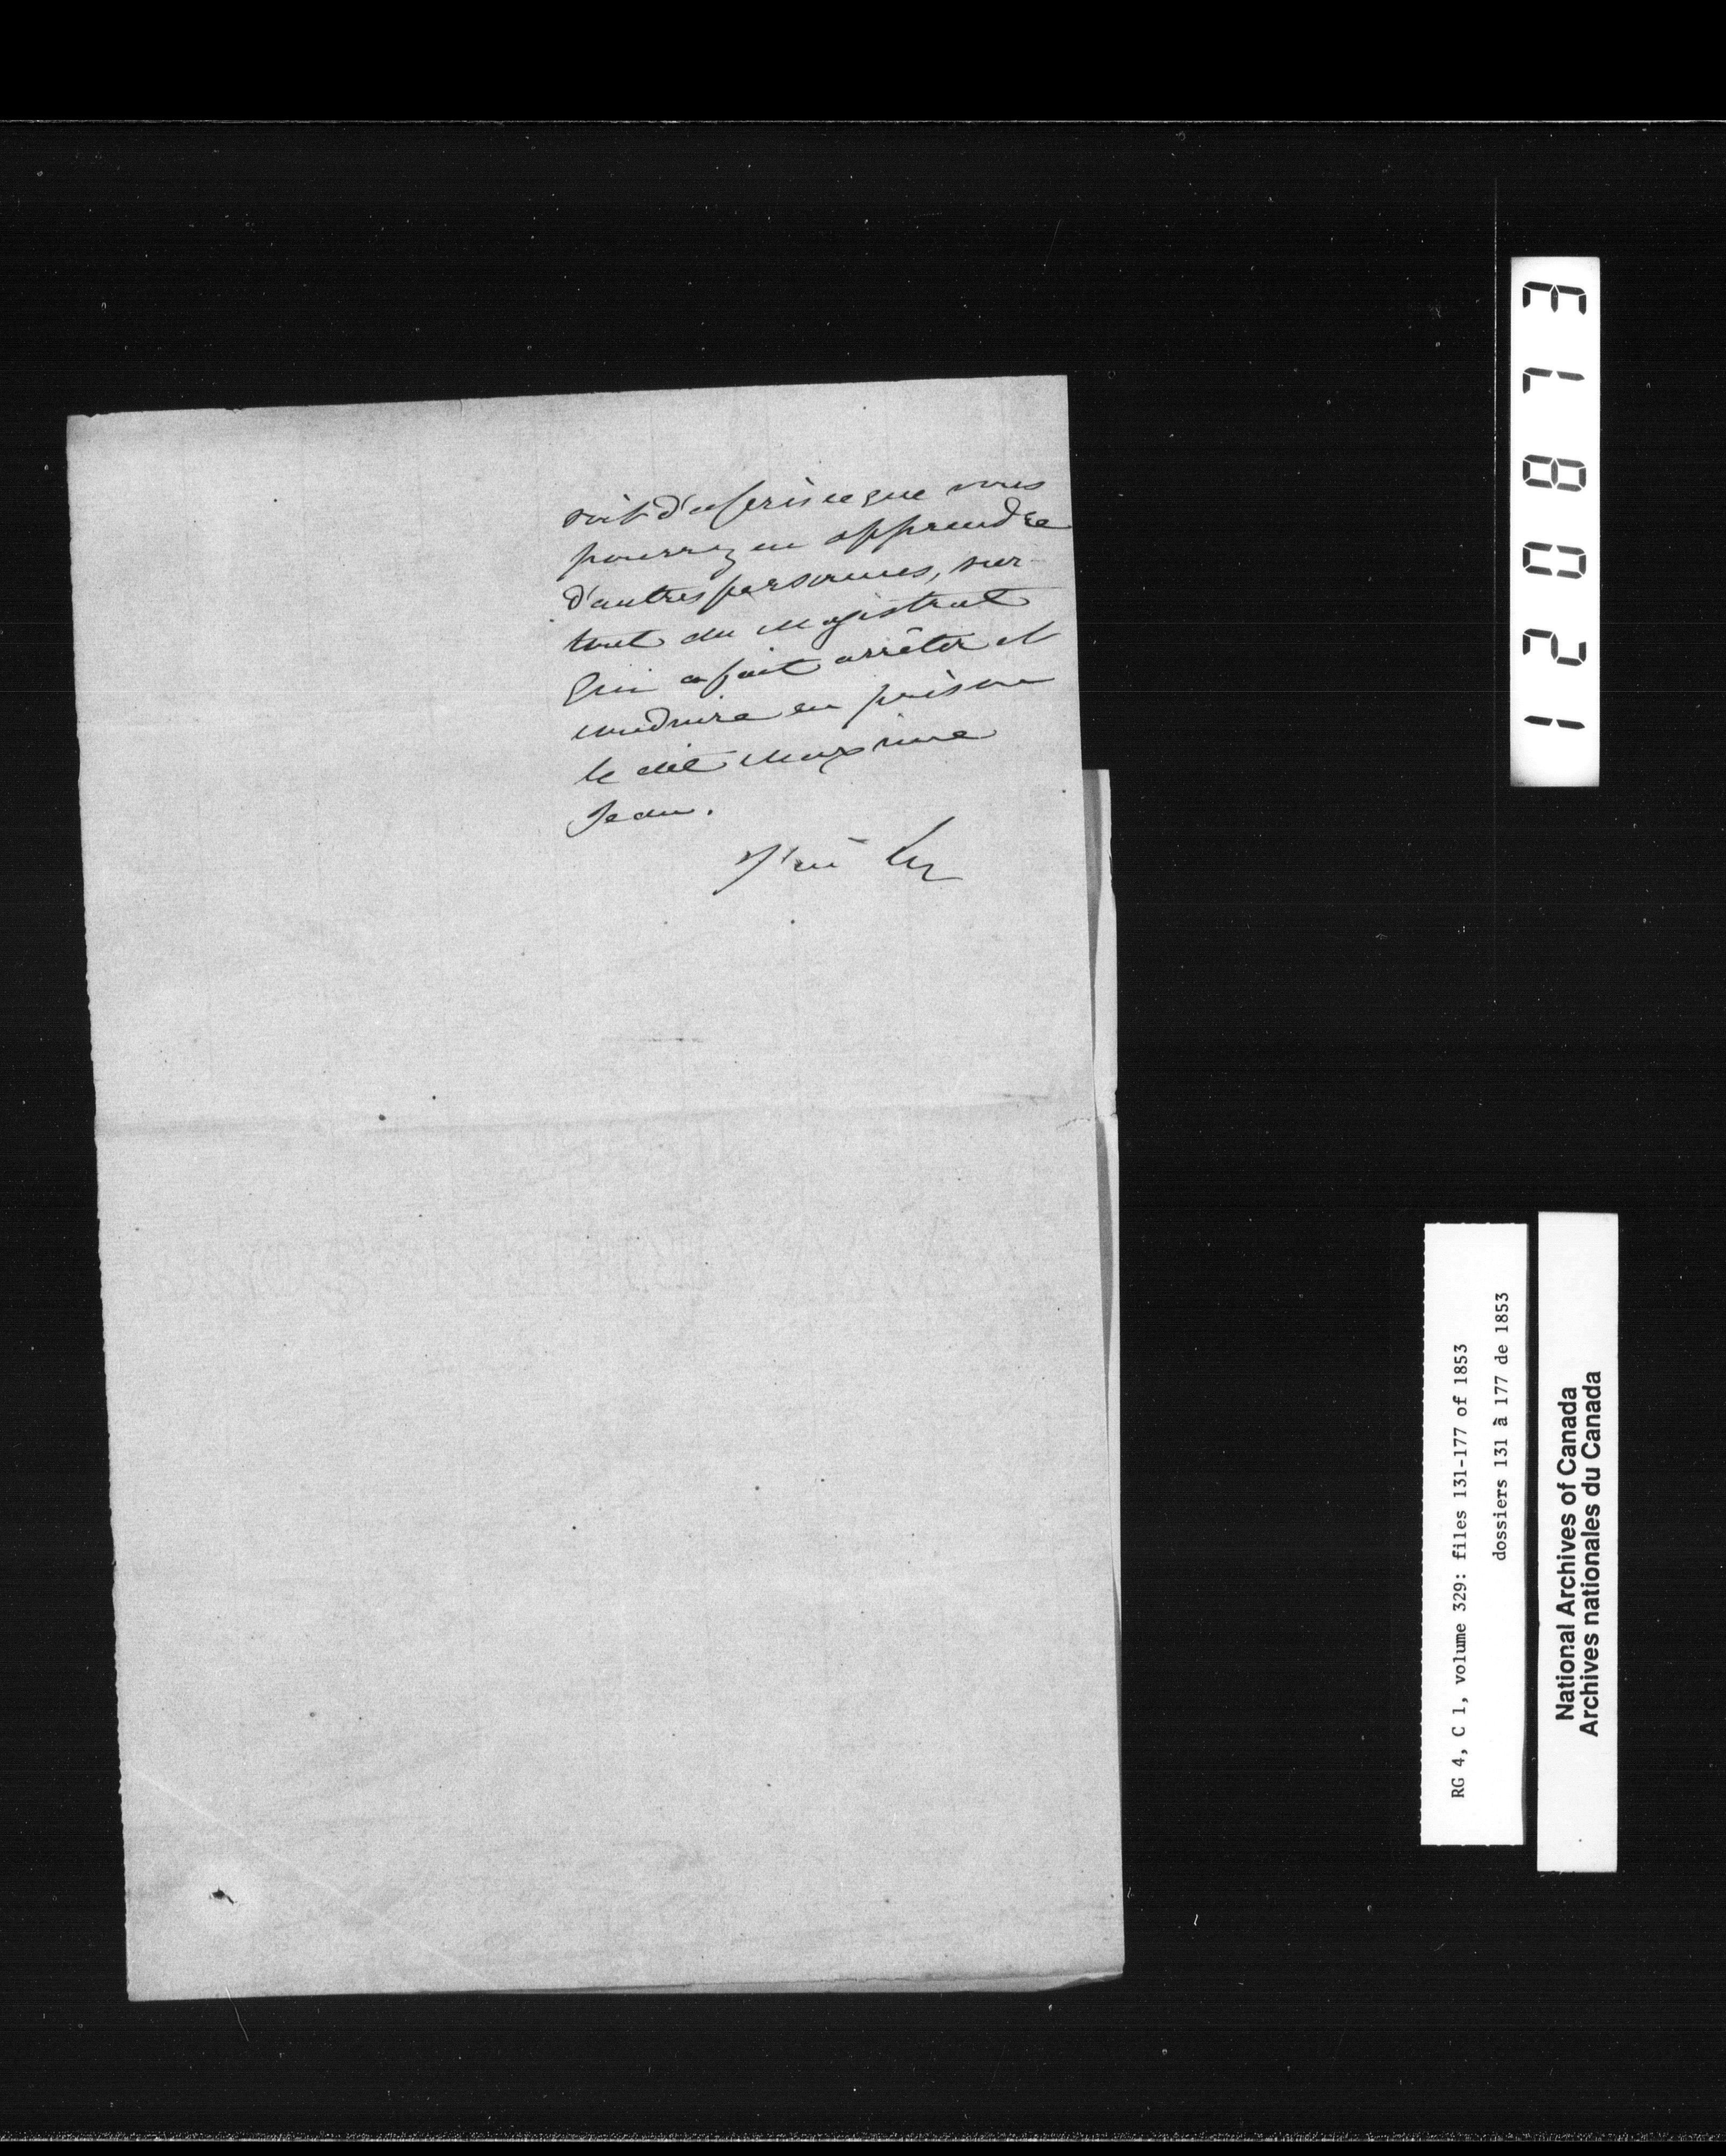 soit d'après ce que vous
pourrez en apprendre
d'autres personnes, sur-
tout du Magistrat
qui a fait arrêter et
conduire en prison
le dit Maxime
Jean.
J'ai
120873
RG 4, C 1, volume 329: files 131-177 of 1853
dossiers 131 à 177 de 1853
National Archives of Canada
Archives nationales du Canada